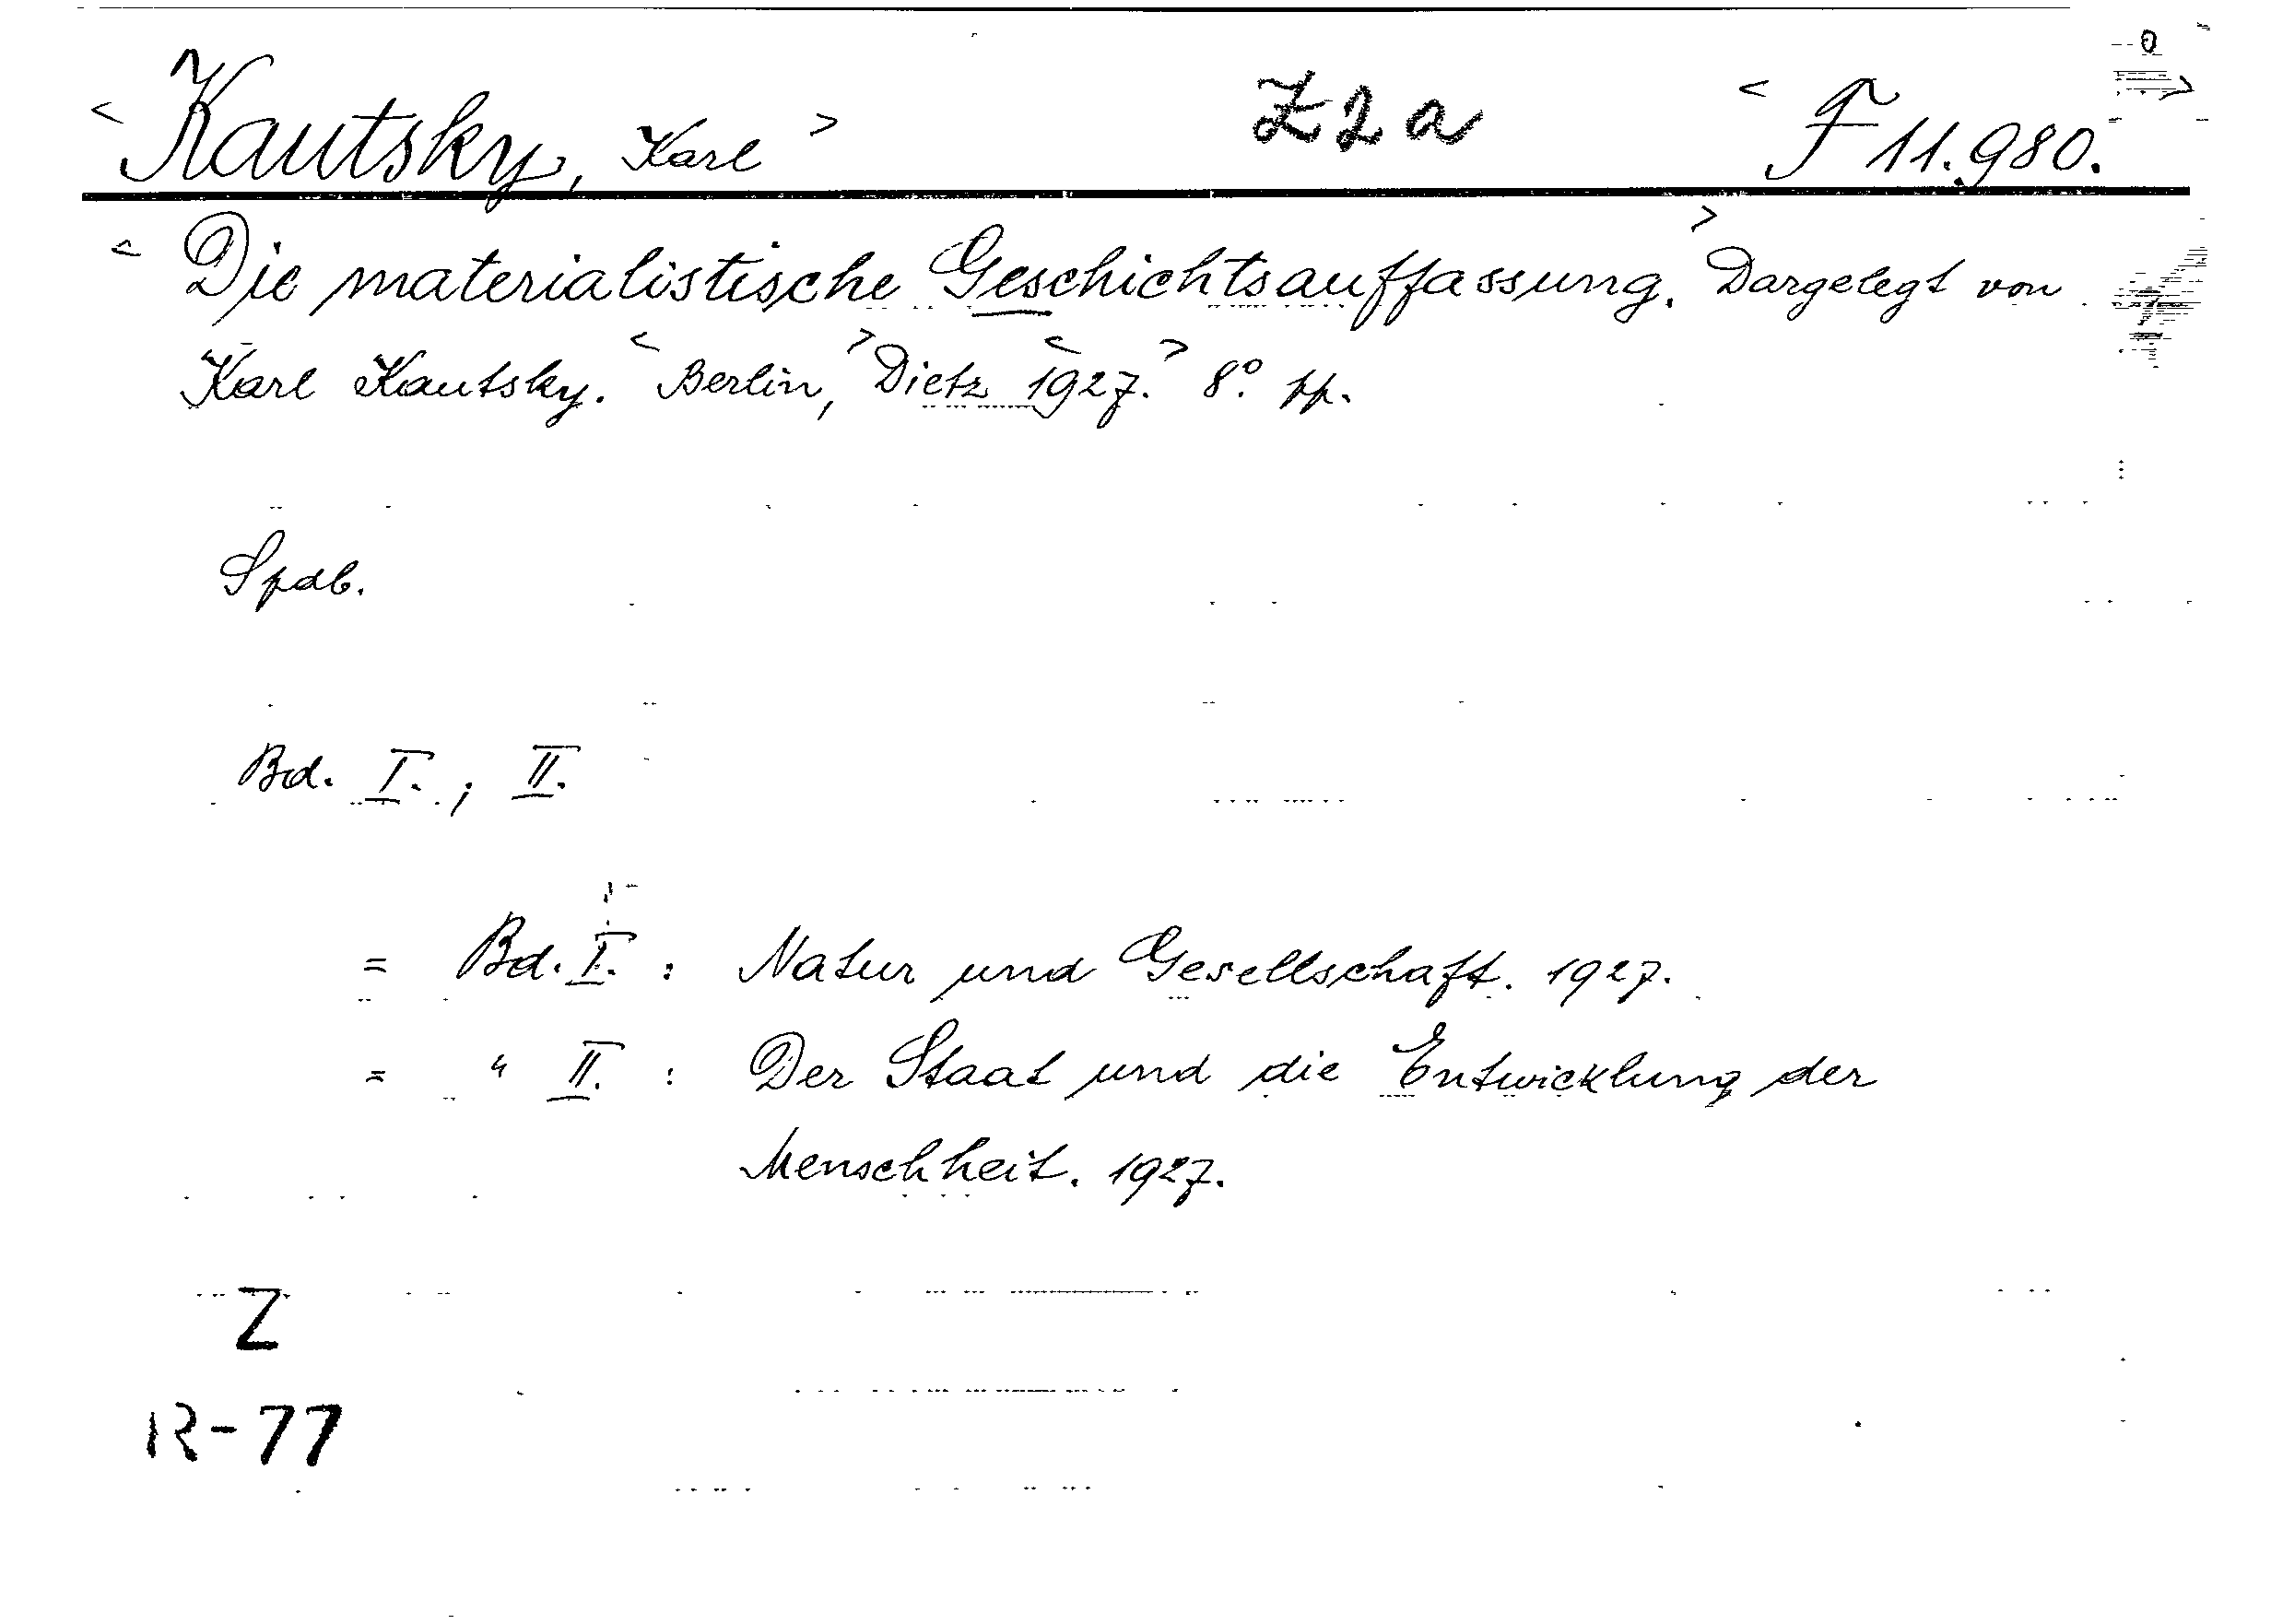 < Kautsky, Karl > Z2a < F 11.980. >
< Die materialistische Geschichtsauffassung. > Dargelegt von
Karl Kautsky. < Berlin, > Dietz < 1927. > 8° pp.
Spdb.
Bd. I. ; II.
= Bd. I. : Natur und Gesellschaft. 1927.
= " II. : Der Staat und die Entwicklung der
Menschheit. 1927.
Z
R-77